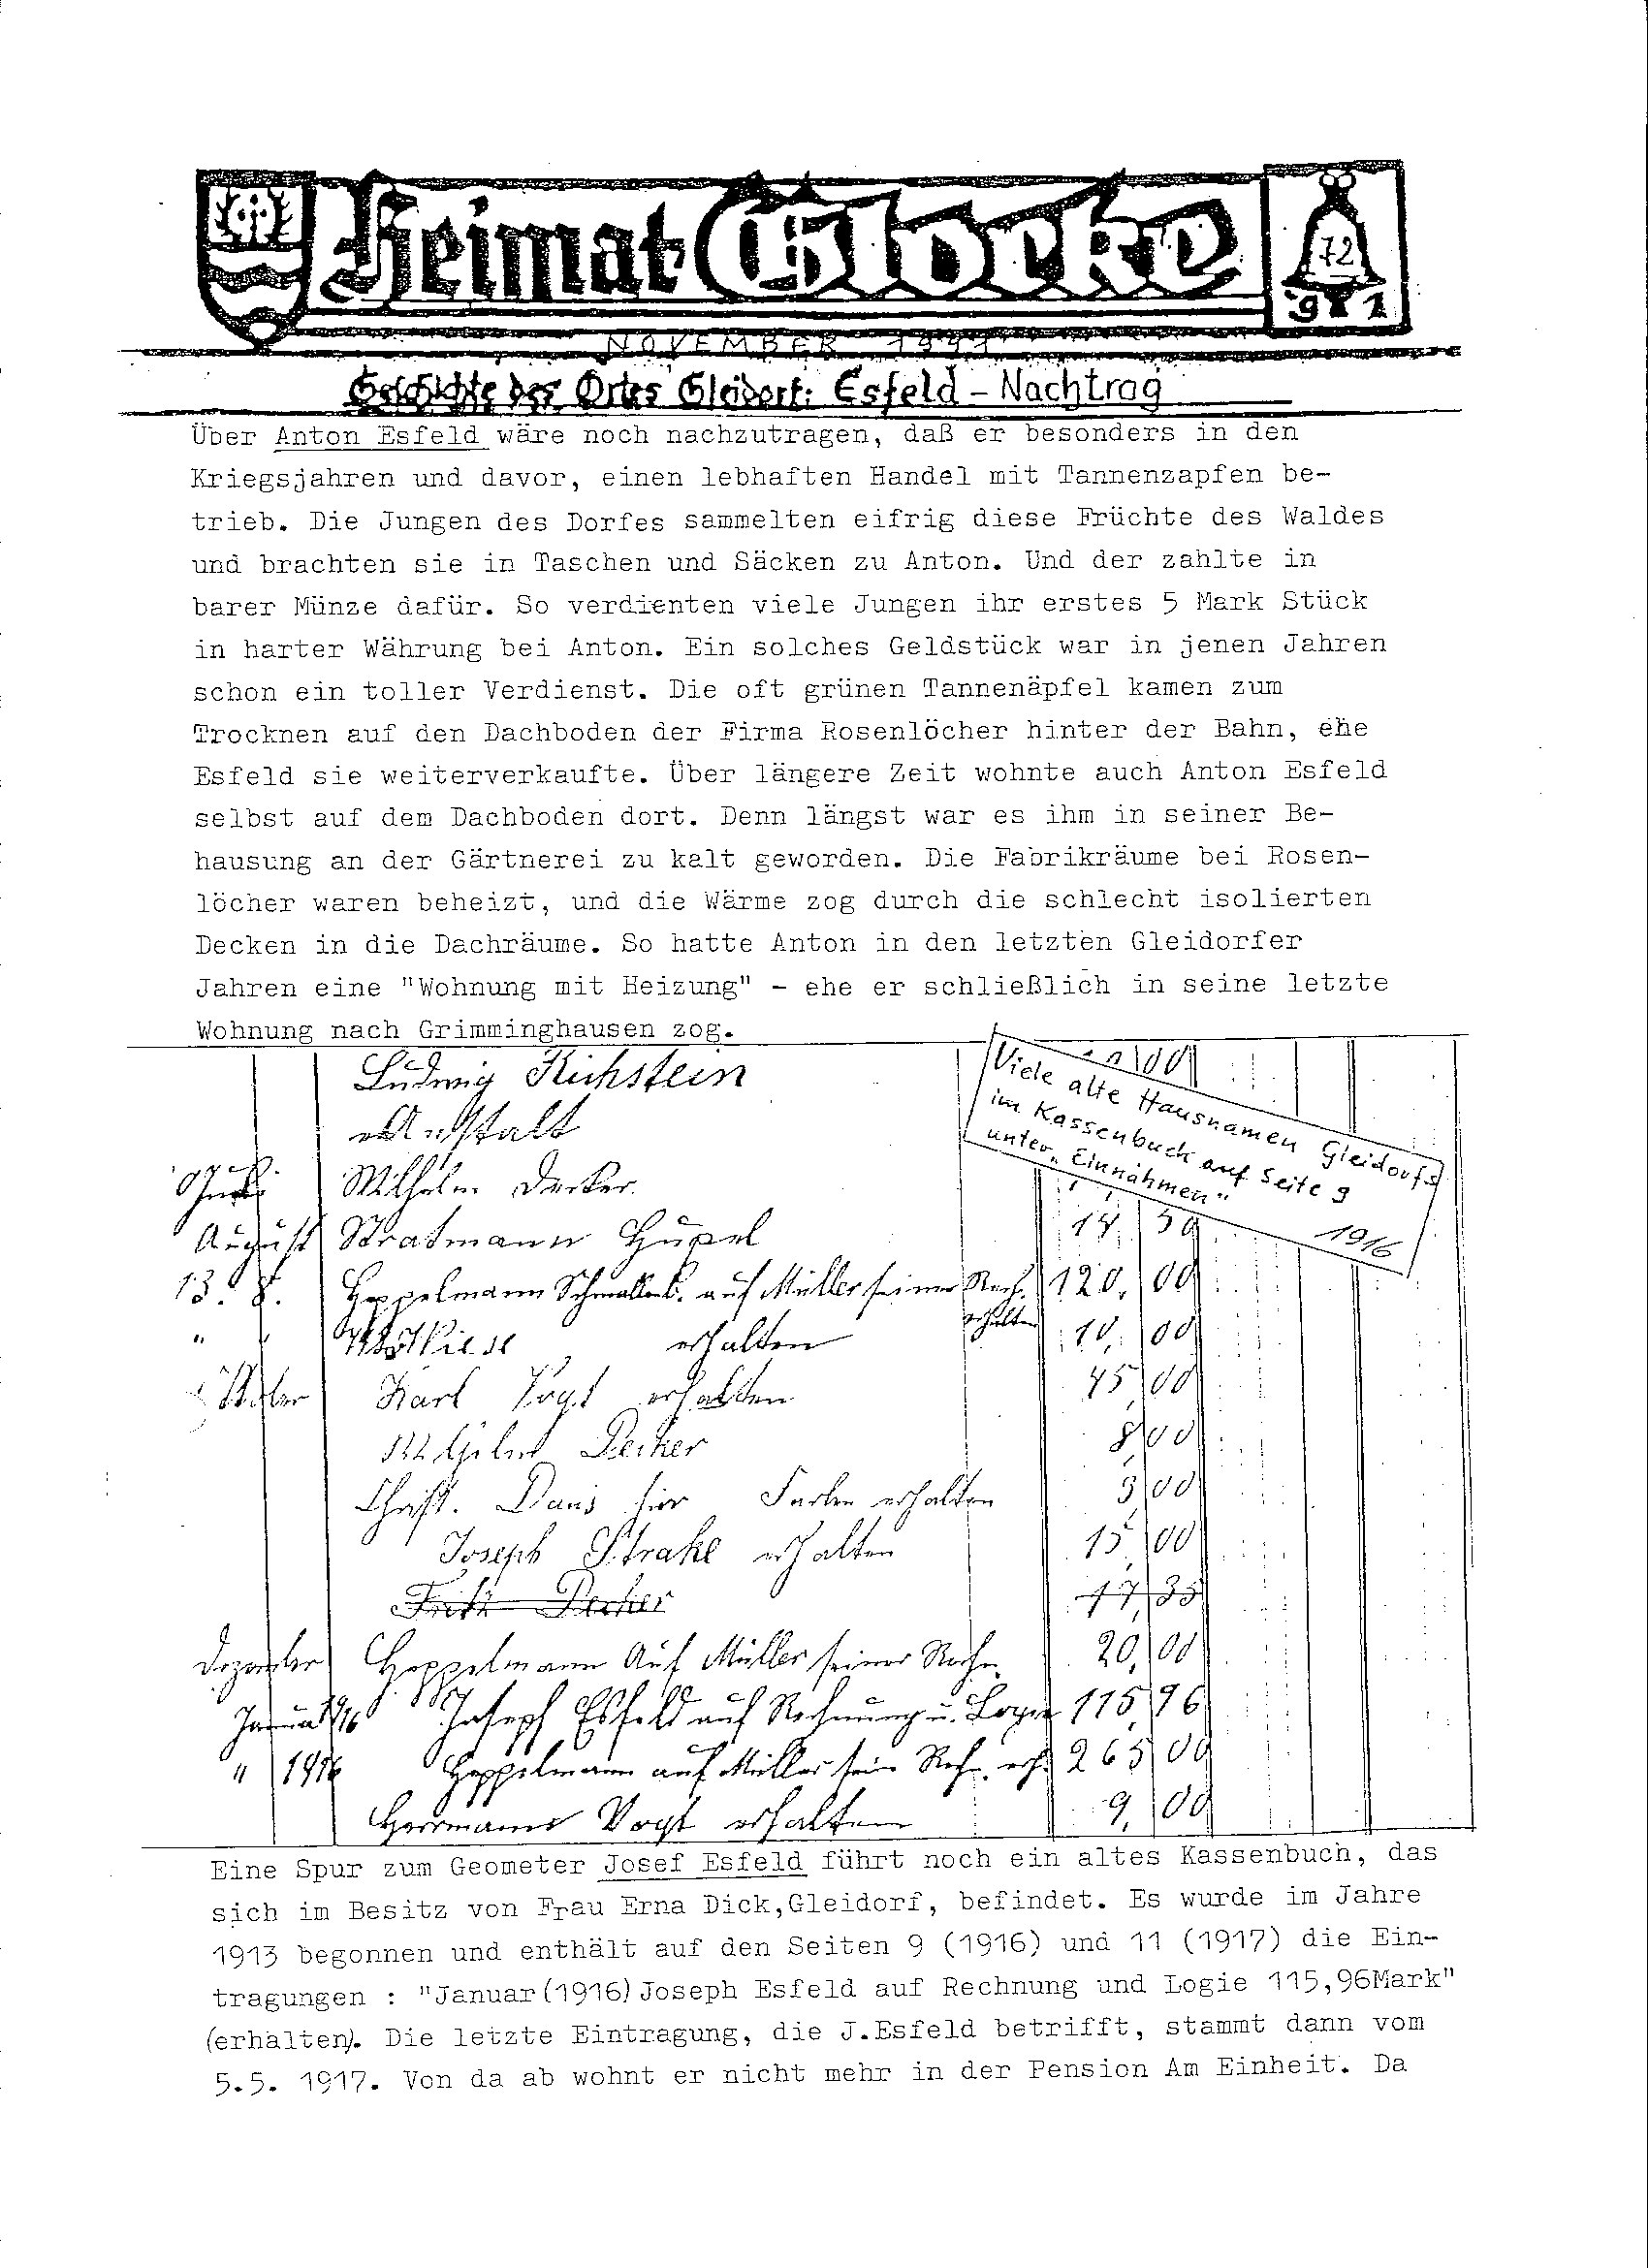 Heimat-Glocke
72
91
NOVEMBER 1991
Geschichte des Ortes Gleidorf: Esfeld - Nachtrag
Über Anton Esfeld wäre noch nachzutragen, daß er besonders in den
Kriegsjahren und davor, einen lebhaften Handel mit Tannenzapfen be-
trieb. Die Jungen des Dorfes sammelten eifrig diese Früchte des Waldes
und brachten sie in Taschen und Säcken zu Anton. Und der zahlte in
barer Münze dafür. So verdienten viele Jungen ihr erstes 5 Mark Stück
in harter Währung bei Anton. Ein solches Geldstück war in jenen Jahren
schon ein toller Verdienst. Die oft grünen Tannenäpfel kamen zum
Trocknen auf den Dachboden der Firma Rosenlöcher hinter der Bahn, ehe
Esfeld sie weiterverkaufte. Über längere Zeit wohnte auch Anton Esfeld
selbst auf dem Dachboden dort. Denn längst war es ihm in seiner Be-
hausung an der Gärtnerei zu kalt geworden. Die Fabrikräume bei Rosen-
löcher waren beheizt, und die Wärme zog durch die schlecht isolierten
Decken in die Dachräume. So hatte Anton in den letzten Gleidorfer
Jahren eine "Wohnung mit Heizung" - ehe er schließlich in seine letzte
Wohnung nach Grimminghausen zog.
Viele alte Hausnamen Gleidorfs
im Kassenbuch auf Seite 9
unter „Einnahmen"
1916
Ludwig Richstein
Anstalt
Wilhelm Decker
August Stratmann Hüpel 14,50
13. 8. Heppelmann Schmallenb. auf Müller seiner Rech. erhalten 120,00
" Wiese erhalten 10,00
Karl Vogt erhalten 45,00
Decker 8,00
Christ. Dans hier Farben erhalten 3,00
Joseph Strake erhalten 15,00
Fritz Decker 17,35
Dezember Heppelmann Auf Müller seiner Rechn. 20,00
Januar 1916 Joseph Esfeld auf Rechnung u. Logie 115,96
" 1916 Heppelmann auf Müller sein Rechn. erh. 265,00
Herrmann Vogt erhalten 9,00
Eine Spur zum Geometer Josef Esfeld führt noch ein altes Kassenbuch, das
sich im Besitz von Frau Erna Dick,Gleidorf, befindet. Es wurde im Jahre
1913 begonnen und enthält auf den Seiten 9 (1916) und 11 (1917) die Ein-
tragungen : "Januar(1916)Joseph Esfeld auf Rechnung und Logie 115,96Mark"
(erhalten). Die letzte Eintragung, die J.Esfeld betrifft, stammt dann vom
5.5. 1917. Von da ab wohnt er nicht mehr in der Pension Am Einheit. Da